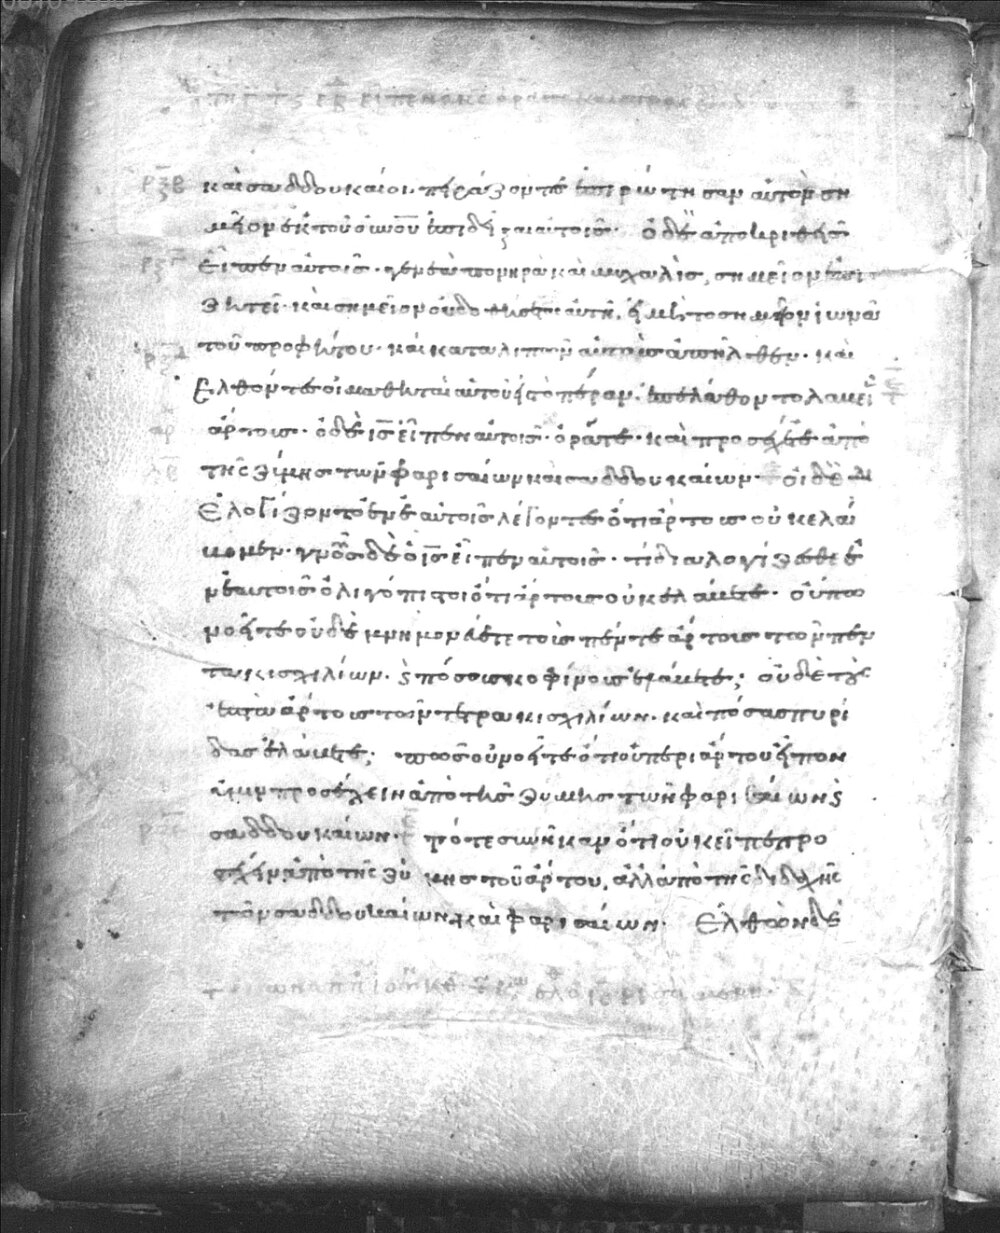 καὶ σαδδουκαίοι πειράζοντες ἐπιρώτησαν αὐτὸν ση
μεῖον ἐκ τοῦ οὐνοῦ ἐπιδεῖξαι αὐτοῖς. ὁ δὲ ἀποκριθεὶς
εἶπεν αὐτοῖς. γενεὰ πονηρὰ καὶ μοιχαλὶς, σημεῖον ἐπι
ζητεῖ. καὶ σημεῖον οὐ δοθήσεται αὐτῆ. εἰ μὴ τὸ σημεῖον ἰωνᾶ
τοῦ προφήτου. καὶ καταλιπὼν αὐτοὺς ἀπῆλθεν. καὶ
ἐλθόντες οἱ μαθηταὶ αὐτοῦ εἰς τὸ πέραν. ἐπελάθοντο λαβεῖν
ἄρτους. ὁ δὲ ις εἶπεν αὐτοῖς. ὁρᾶτε καὶ προσέχετε ἀπὸ
τῆς ζύμης τῶν φαρισαίων καὶ σαδδουκαίων. οἱ δὲ δι
ελογίζοντο ἐν ἑαυτοῖς λέγοντες ὅτι ἄρτους οὐκ ελάβ
ομεν. γνοῦς δὲ ὁ ις εἶπεν αὐτοῖς. τί διαλογίζεσθε ἐ
ν ἑαυτοῖς ὀλιγόπιστοι ὅτι ἄρτους οὐκ ελάβετε. οὔπω
νοεῖτε οὐδὲ μνημονεύετε τοὺς πέντε ἄρτους τῶν πεν
τακισχιλίων. ϗ πόσους κοφίνους ἐλάβετε; οὐδὲ τοὺς
ἑπτὰ ἄρτους τῶν τετρακισχιλίων. καὶ πόσας πυρί
δας ἐλάβετε; πῶς οὐ νοεῖτε ὅτι οὐ περὶ ἄρτου εἶπον
ὑμῖν προσέχειν ἀπὸ τῆς ζύμης τῶν φαρισαίων ϗ
σαδδουκαίων. τότε συνῆκαν ὅτι οὐκ εἶπεν προ
σέχειν ἀπὸ τῆς ζύμης τοῦ ἄρτου, ἀλλ ἀπὸ τῆς διδαχῆς
τῶν σαδδουκαίων καὶ φαρισαίων. Ἐλθὼν δὲ